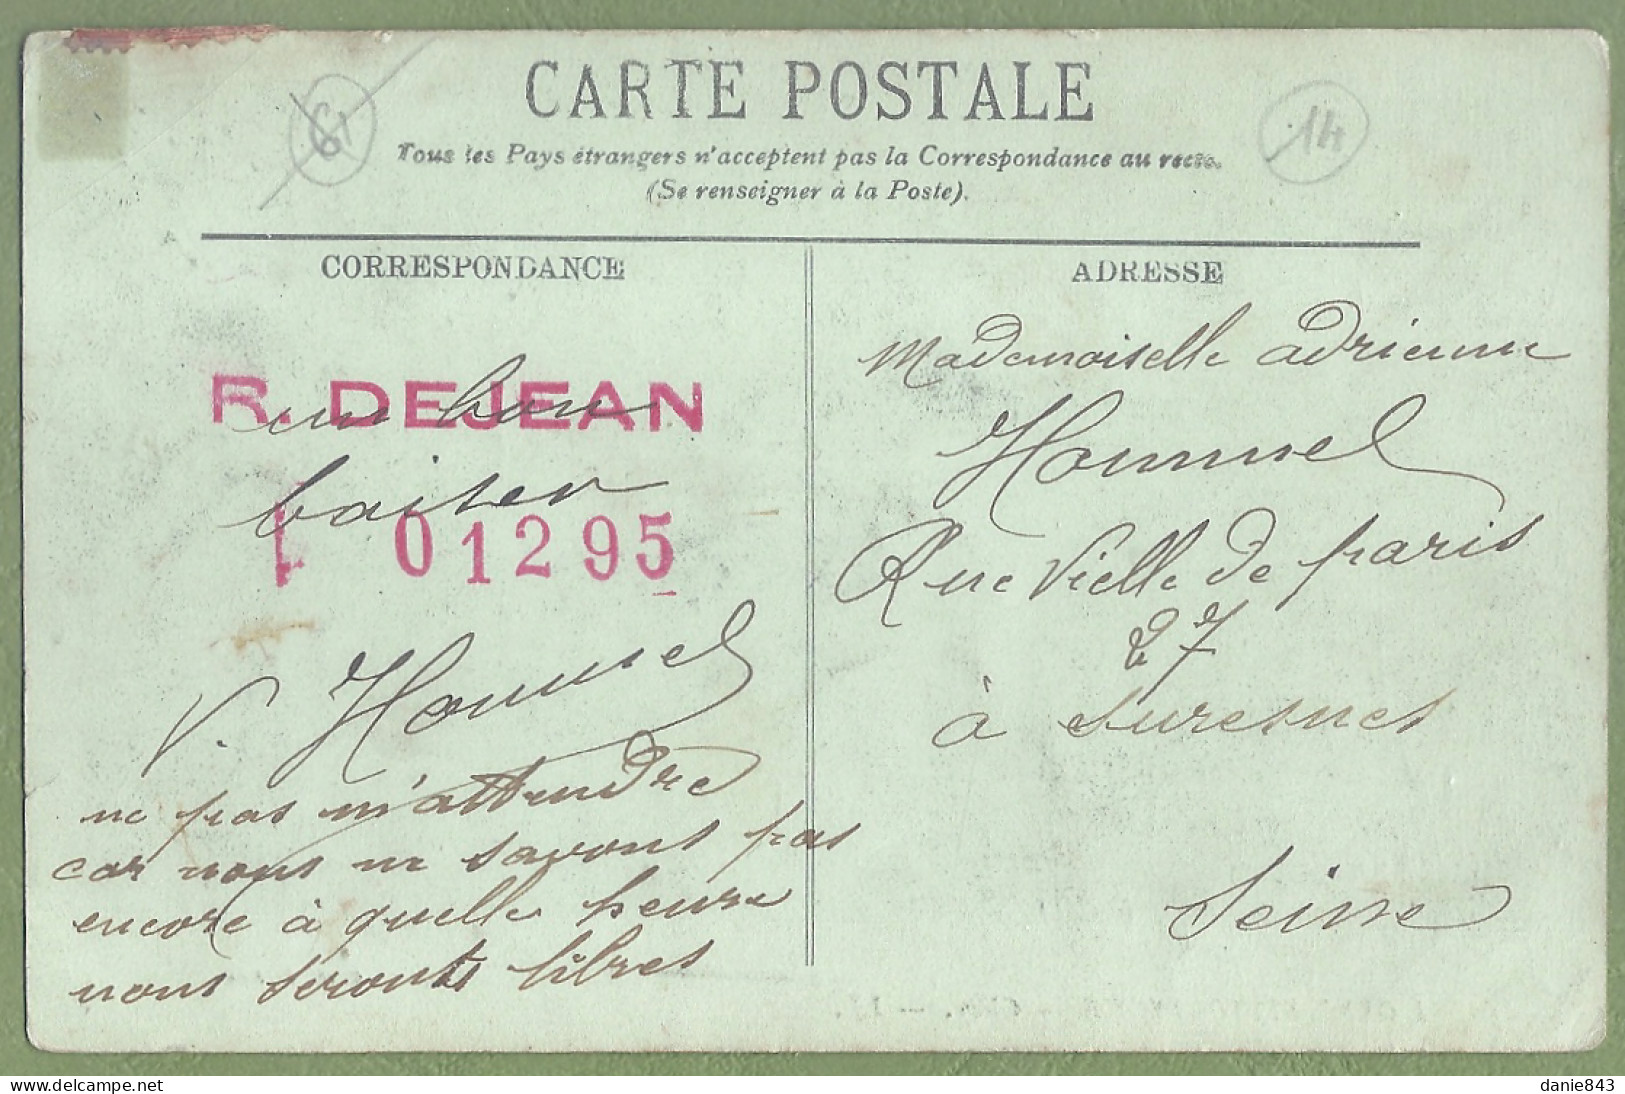 CARTE POSTALE
Tous les Pays étrangers n'acceptent pas la Correspondance au recto.
(Se renseigner à la Poste).
61
14
CORRESPONDANCE
R. DEJEAN
un bon
baiser
01295
V. Hommel
ne pas m'attendre
car nous ne savons pas
encore à quelle heure
nous seronts libres
ADRESSE
Mademoiselle Adrienne
Hommel
Rue Vielle de paris
27
à Suresnes
Seine
danie843